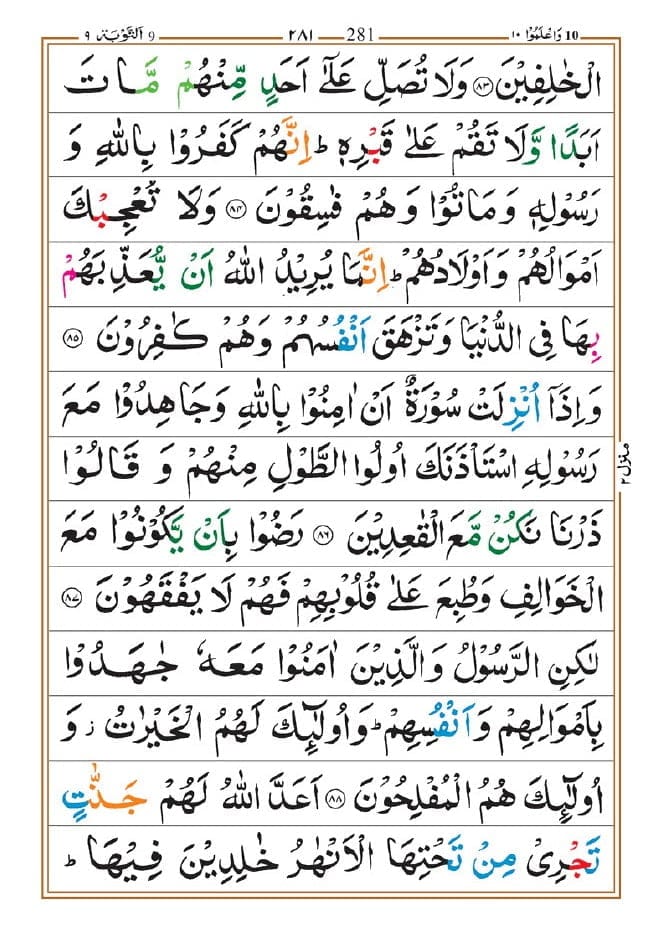 10 وَاعْلَمُوْا ١٠ — 281 — ٢٨١ — 9 اَلتَّوْبَة ٩
الْخٰلِفِيْنَ ﴿۸۳﴾ وَلَا تُصَلِّ عَلٰٓى اَحَدٍ مِّنْهُمْ مَّاتَ
اَبَدًا وَّلَا تَقُمْ عَلٰى قَبْرِهٖ ؕ اِنَّهُمْ كَفَرُوْا بِاللّٰهِ وَ
رَسُوْلِهٖ وَمَاتُوْا وَهُمْ فٰسِقُوْنَ ﴿۸۴﴾ وَلَا تُعْجِبْكَ
اَمْوَالُهُمْ وَاَوْلَادُهُمْ ؕ اِنَّمَا يُرِيْدُ اللّٰهُ اَنْ يُّعَذِّبَهُمْ
بِهَا فِى الدُّنْيَا وَتَزْهَقَ اَنْفُسُهُمْ وَهُمْ كٰفِرُوْنَ ﴿۸۵﴾
وَاِذَاۤ اُنْزِلَتْ سُوْرَةٌ اَنْ اٰمِنُوْا بِاللّٰهِ وَجَاهِدُوْا مَعَ
رَسُوْلِهِ اسْتَاْذَنَكَ اُولُوا الطَّوْلِ مِنْهُمْ وَ قَالُوْا
ذَرْنَا نَكُنْ مَّعَ الْقٰعِدِيْنَ ﴿۸۶﴾ رَضُوْا بِاَنْ يَّكُوْنُوْا مَعَ
الْخَوَالِفِ وَطُبِعَ عَلٰى قُلُوْبِهِمْ فَهُمْ لَا يَفْقَهُوْنَ ﴿۸۷﴾
لٰكِنِ الرَّسُوْلُ وَالَّذِيْنَ اٰمَنُوْا مَعَهٗ جٰهَدُوْا
بِاَمْوَالِهِمْ وَاَنْفُسِهِمْ ؕ وَاُولٰٓئِكَ لَهُمُ الْخَيْرٰتُ ز وَ
اُولٰٓئِكَ هُمُ الْمُفْلِحُوْنَ ﴿۸۸﴾ اَعَدَّ اللّٰهُ لَهُمْ جَنّٰتٍ
تَجْرِىْ مِنْ تَحْتِهَا الْاَنْهٰرُ خٰلِدِيْنَ فِيْهَا ؕ
منزل ۲